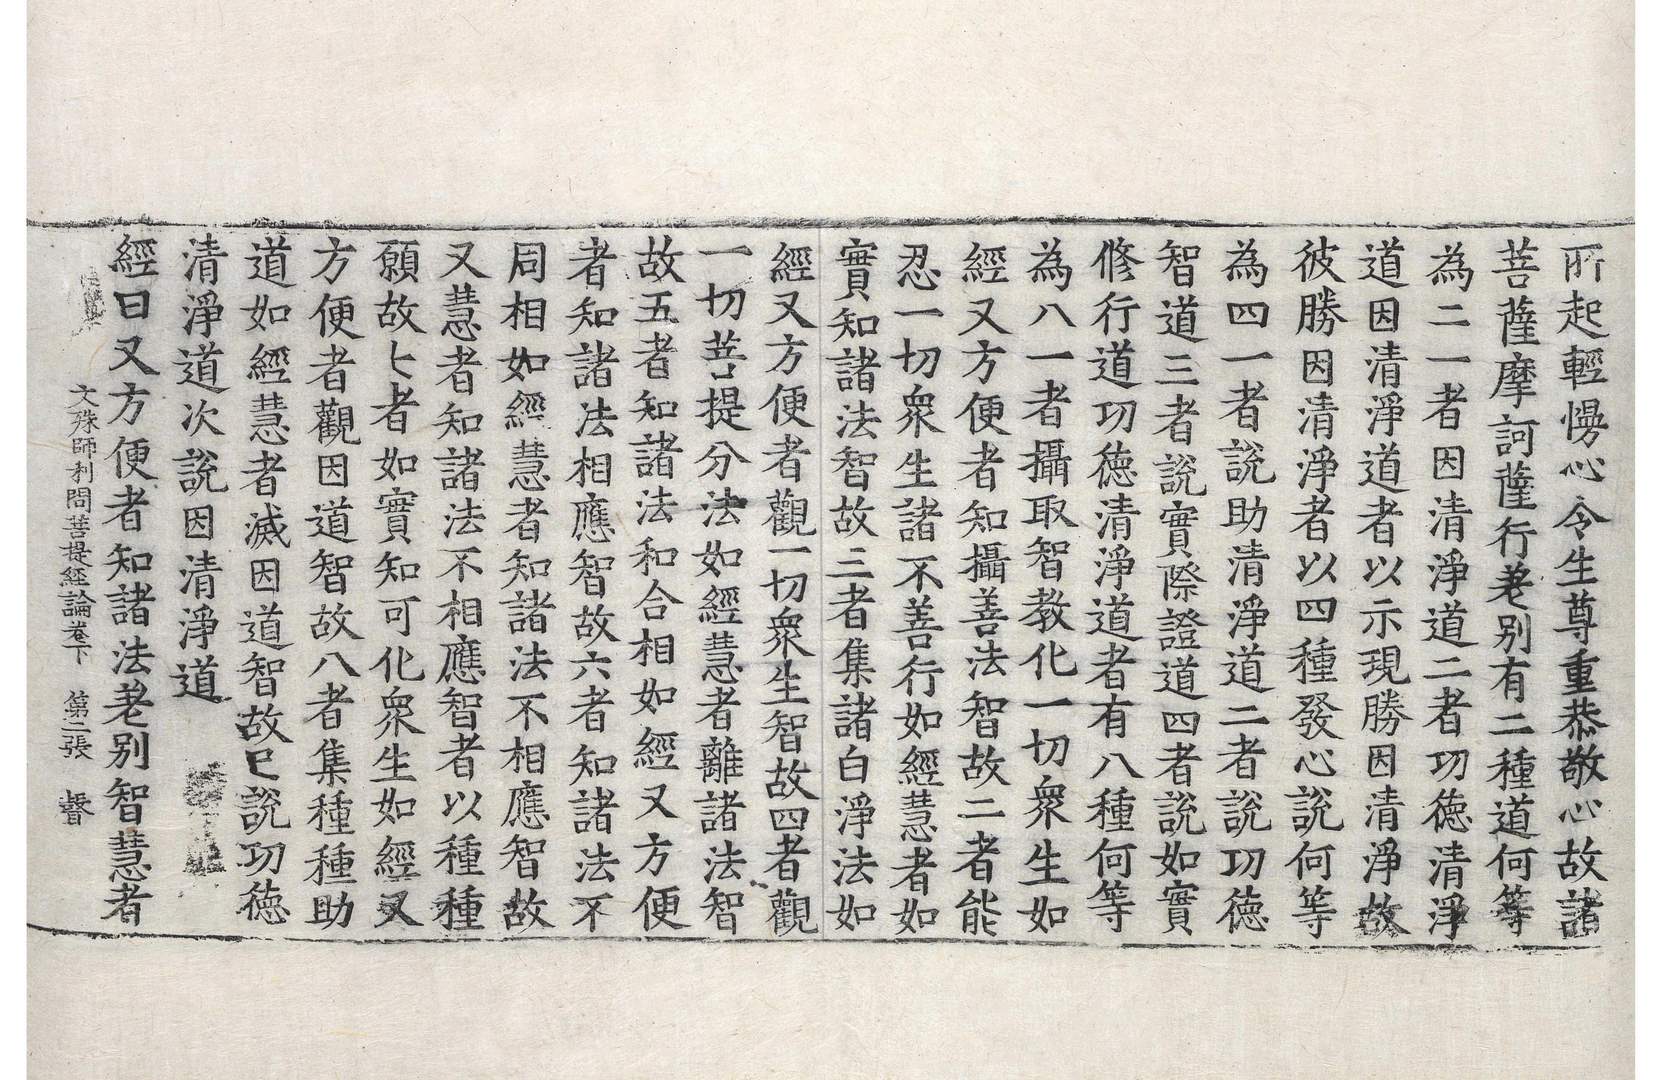 所起輕慢心令生尊重恭敬心故諸
菩薩摩訶薩行差別有二種道何等
為二一者因清淨道二者功德清淨
道因清淨道者以示現勝因清淨故
彼勝因清淨者以四種發心說何等
為四一者說助清淨道二者說功德
智道三者說實際證道四者說如實
修行道功德清淨道者有八種何等
為八一者攝取智教化一切衆生如
經又方便者知攝善法智故二者能
忍一切衆生諸不善行如經慧者如
實知諸法智故三者集諸白淨法如
經又方便者觀一切衆生智故四者觀
一切菩提分法如經慧者離諸法智
故五者知諸法和合相如經又方便
者知諸法相應智故六者知諸法不
同相如經慧者知諸法不相應智故
又慧者知諸法不相應智者以種種
願故七者如實知可化衆生如經又
方便者觀因道智故八者集種種助
道如經慧者滅因道智故已說功德
清淨道次說因清淨道
經曰又方便者知諸法差別智慧者
文殊師利問菩提經論卷下 第二張 聲